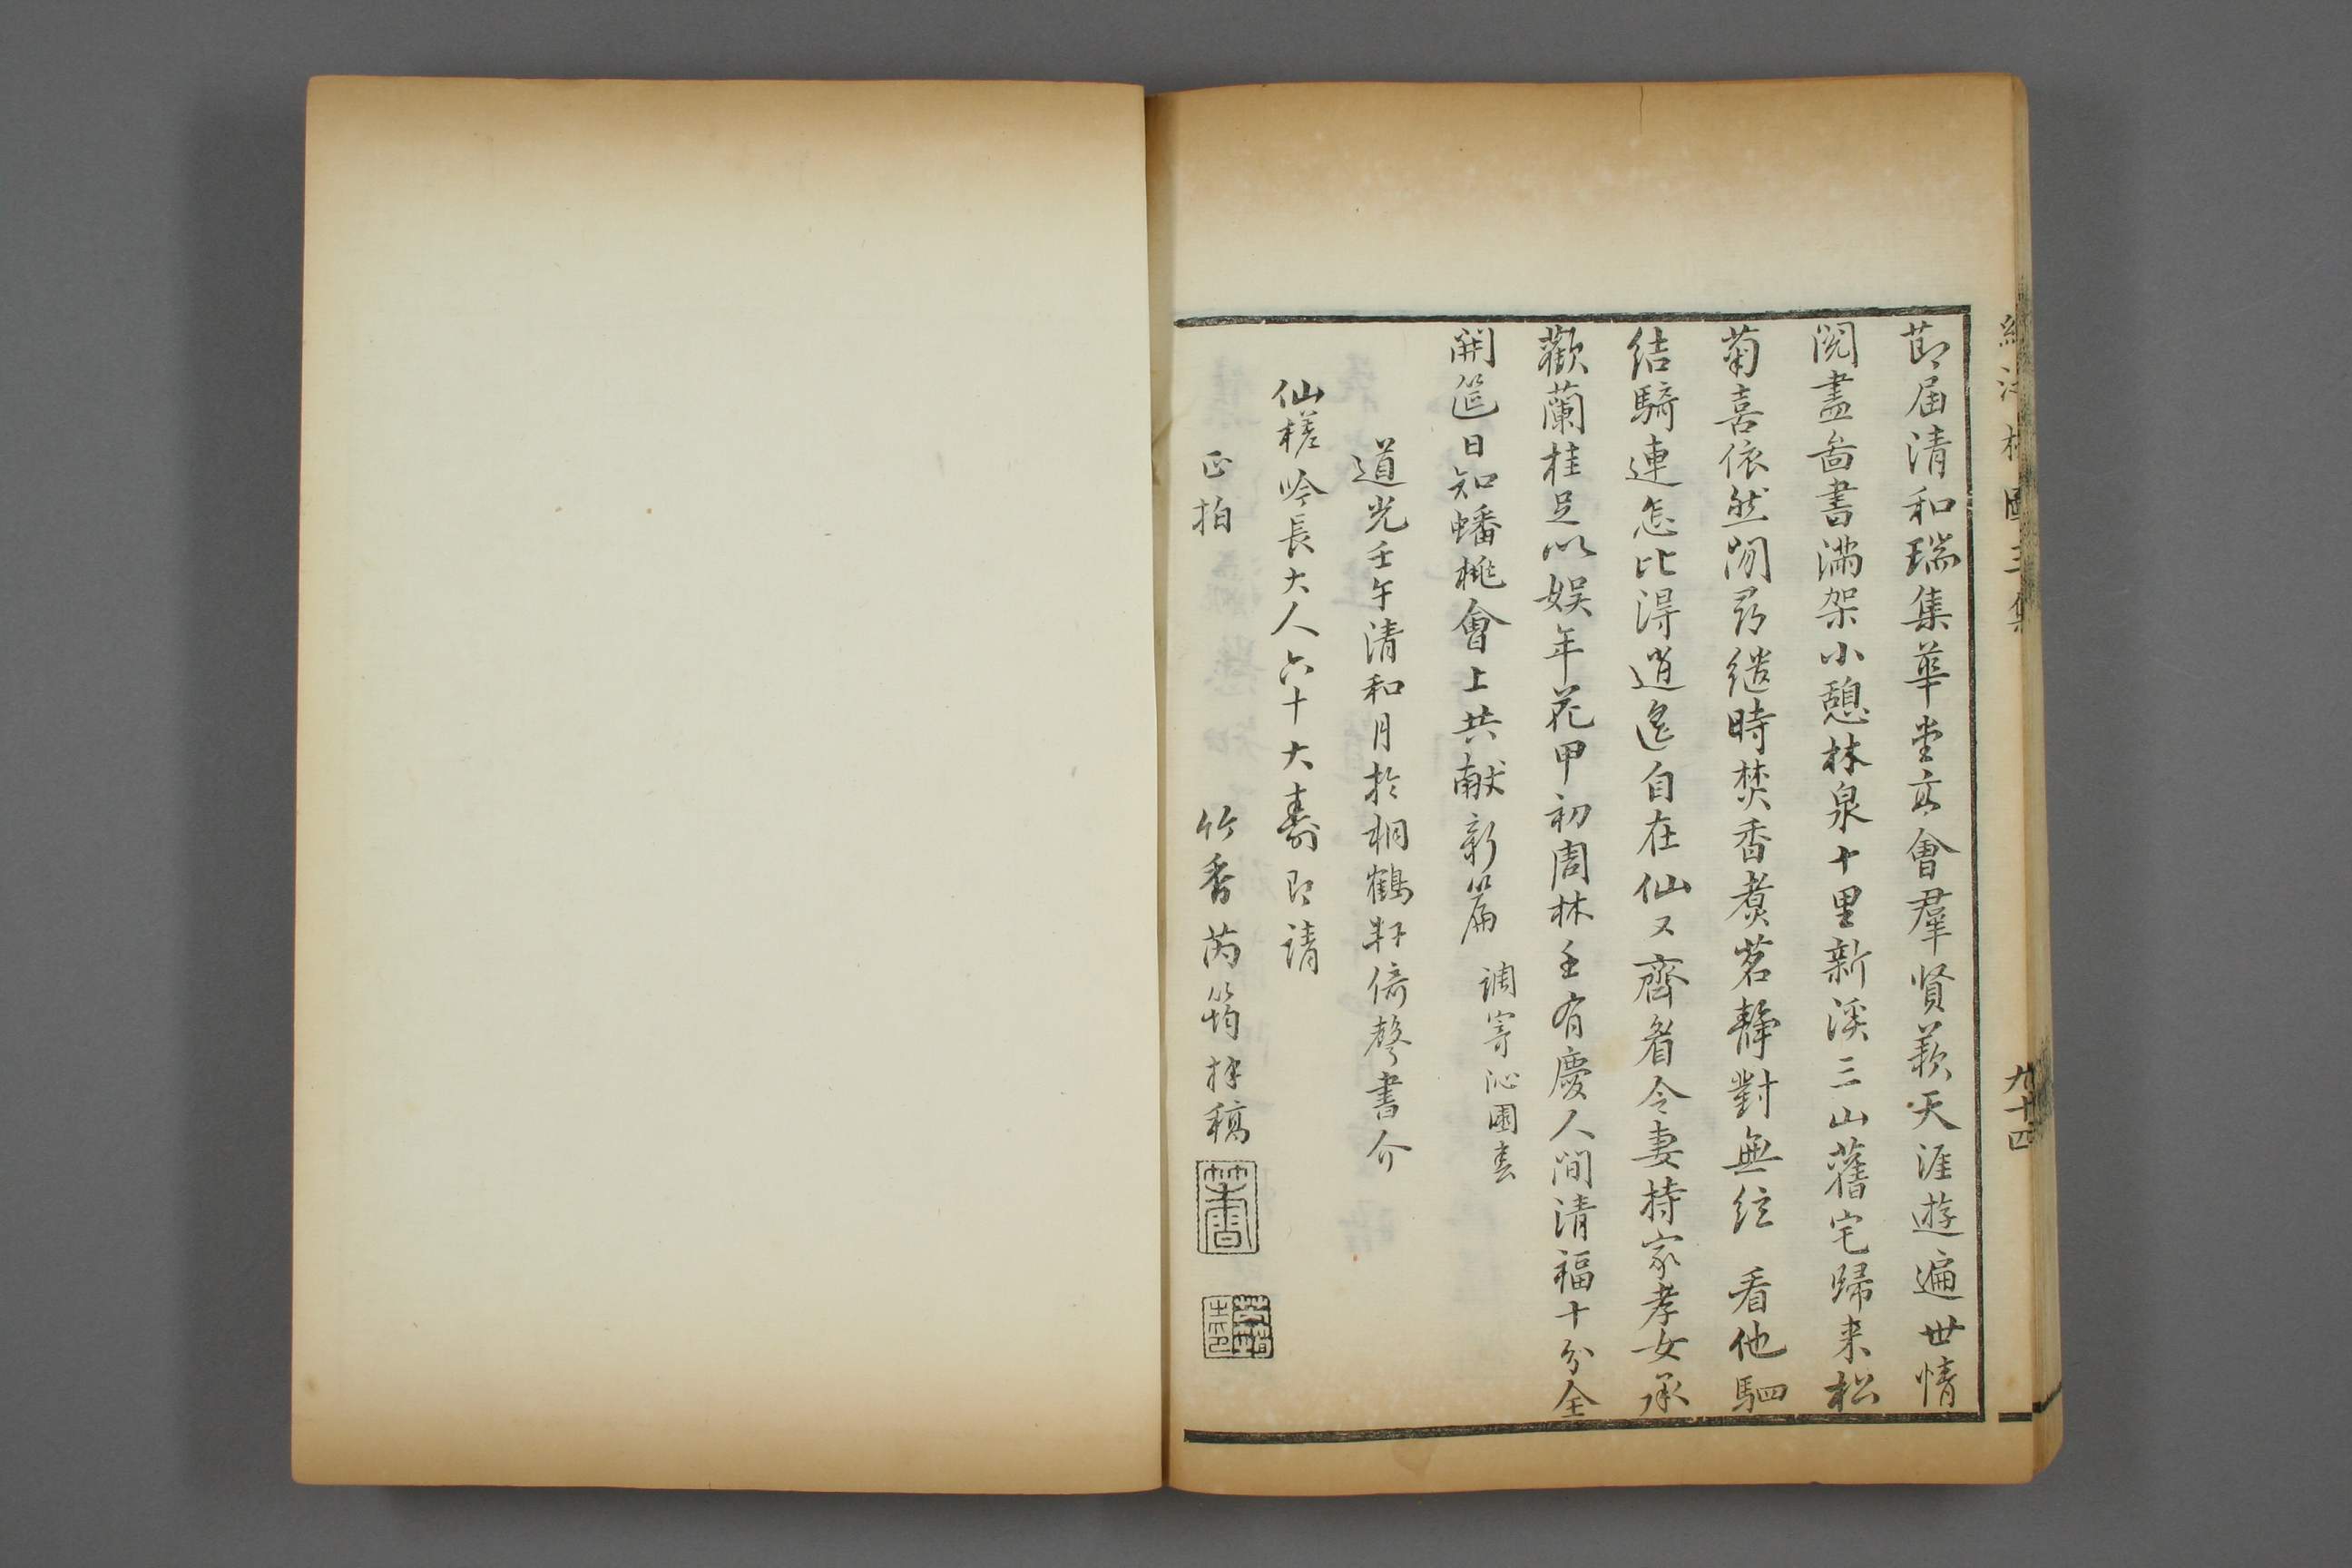 節届清和瑞集華堂高會羣賢羨天涯遊遍世情
閱盡啚書滿架小憩林泉十里新溪三山舊宅歸来松
菊喜依然閒尋繹時焚香煮茗靜對無絃 看他駟
結騎連怎比得逍遥自在仙又齊眉令妻持家孝女承
歡蘭桂足以娱年花甲初周林壬有慶人間清福十分全
開筵日知蟠桃會上共献新篇 調寄沁園春
道光壬午清和月於桐鶴軒倚聲書介
仙槎吟長大人六十大壽即請
正拍
竹香芮筠拜稿
竹香
九十四